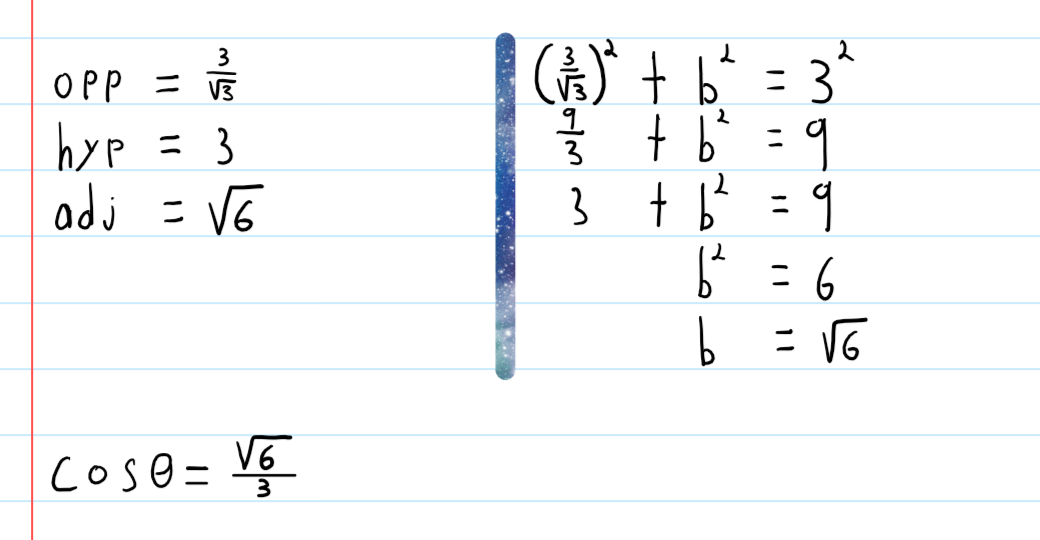 opp = 3/√3
hyp = 3
adj = √6
(3/√3)² + b² = 3²
9/3 + b² = 9
3 + b² = 9
b² = 6
b = √6
cosθ = √6/3